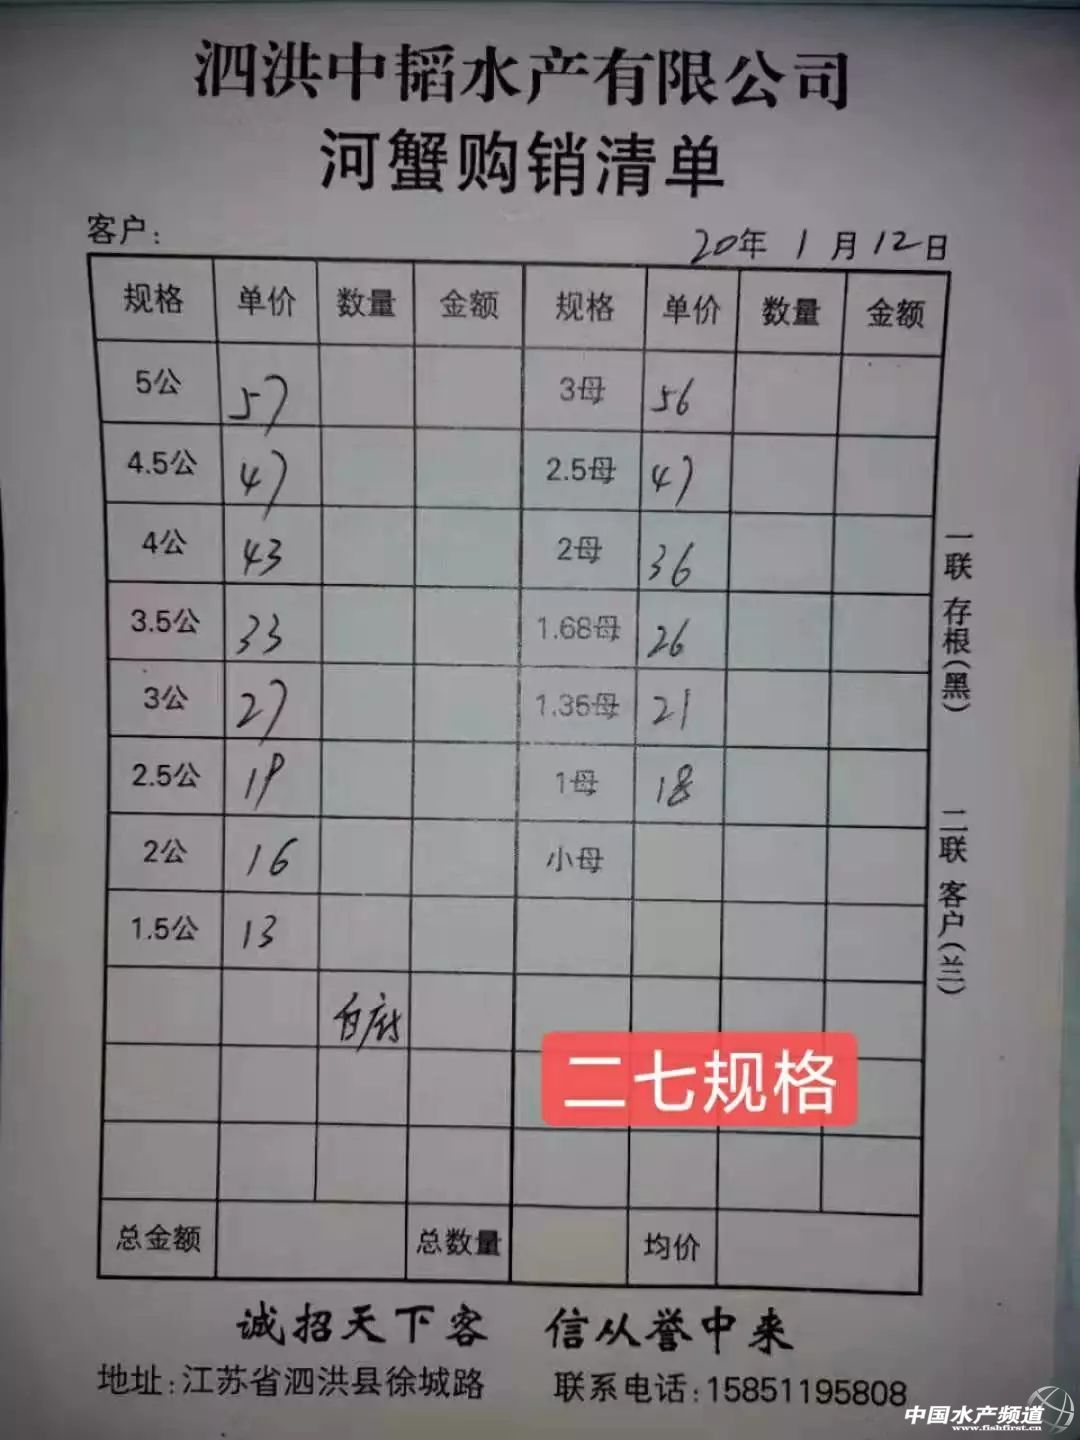 泗洪中韬水产有限公司
河蟹购销清单
客户: 20年 1月12日
规格 单价 数量 金额 规格 单价 数量 金额
5公 57 3母 56
4.5公 47 2.5母 47
4公 43 2母 36
3.5公 33 1.68母 26
3公 27 1.36母 21
2.5公 19 1母 18
2公 16 小母
1.5公 13
二七规格
总金额 总数量 均价
一联 存根(黑)
二联 客户(兰)
诚招天下客 信从誉中来
地址:江苏省泗洪县徐城路 联系电话:15851195808
中国水产频道
www.fishfirst.cn